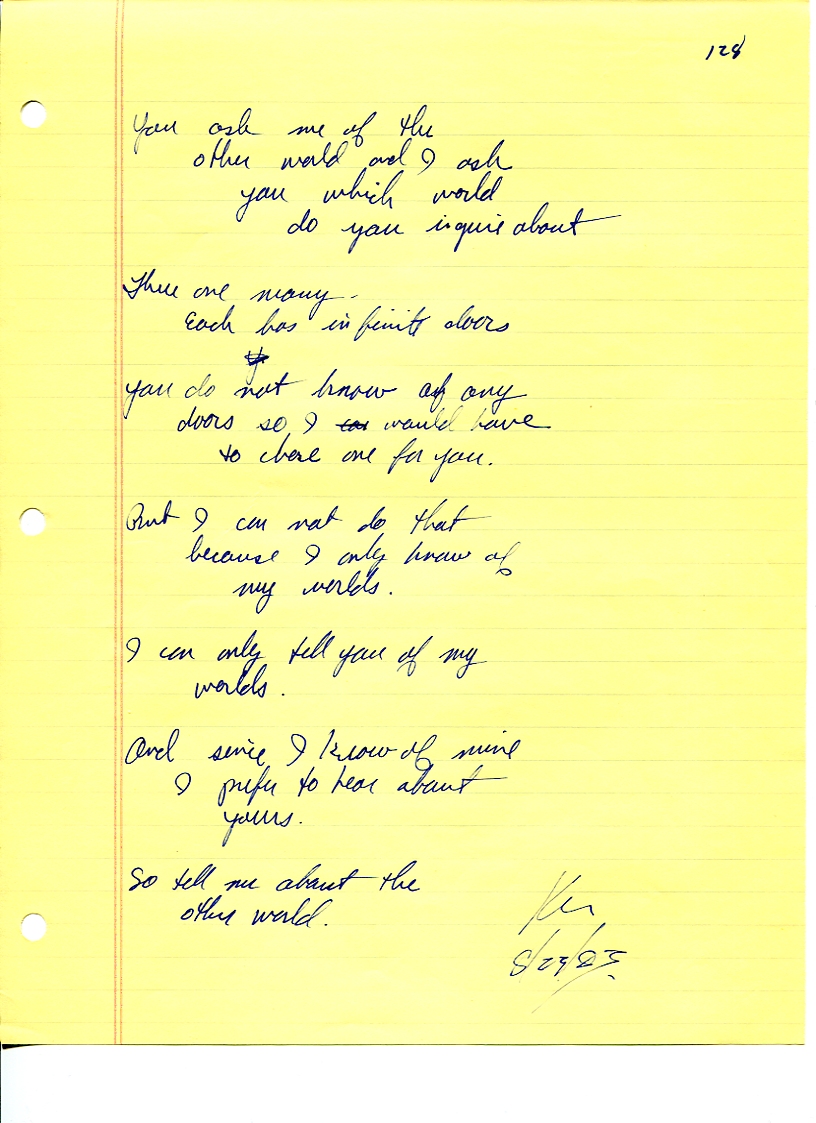 128
You ask me of the
other world and I ask
you which world
do you inquire about
There are many.
Each has infinite doors
you do not know of any
doors so I would have
to chose one for you.
But I can not do that
because I only know of
my worlds.
I can only tell you of my
worlds.
And since I know of mine
I prefer to hear about
yours.
So tell me about the
other world.
Ken